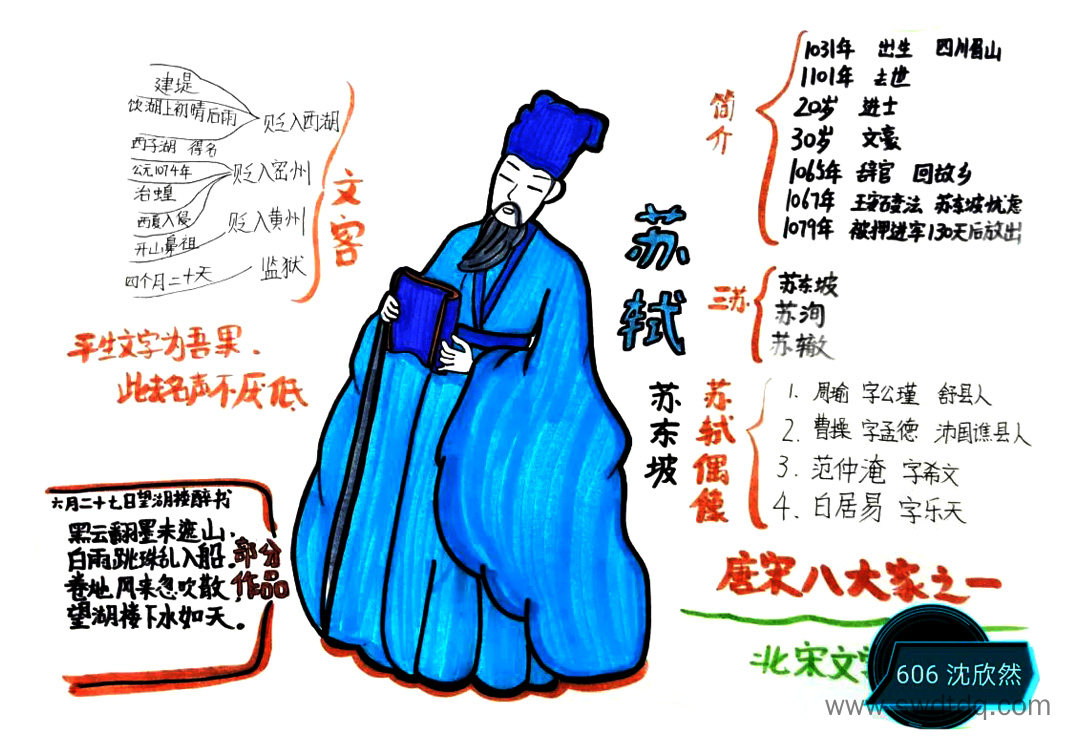 建堤
饮湖上初晴后雨
西子湖 得名
贬入西湖
公元1074年
治蝗
西夏入侵
贬入密州
开山鼻祖
贬入黄州
四个月二十天
监狱
文客
平生文字为吾累.
此去名声不厌低
六月二十七日望湖楼醉书
黑云翻墨未遮山.
白雨跳珠乱入船.
卷地风来忽吹散
望湖楼下水如天。
部分
作品
苏轼
苏东坡
简介
1031年 出生 四川眉山
1101年 去世
20岁 进士
30岁 文豪
1065年 辞官 回故乡
1067年 王安石变法 苏东坡忧虑
1079年 被押进牢130天后放出
三苏
苏东坡
苏洵
苏辙
苏轼偶像
1. 周瑜 字公瑾 舒县人
2. 曹操 字孟德 沛国谯县人
3. 范仲淹 字希文
4. 白居易 字乐天
唐宋八大家之一
北宋文学
606 沈欣然
www.swdtdq.com